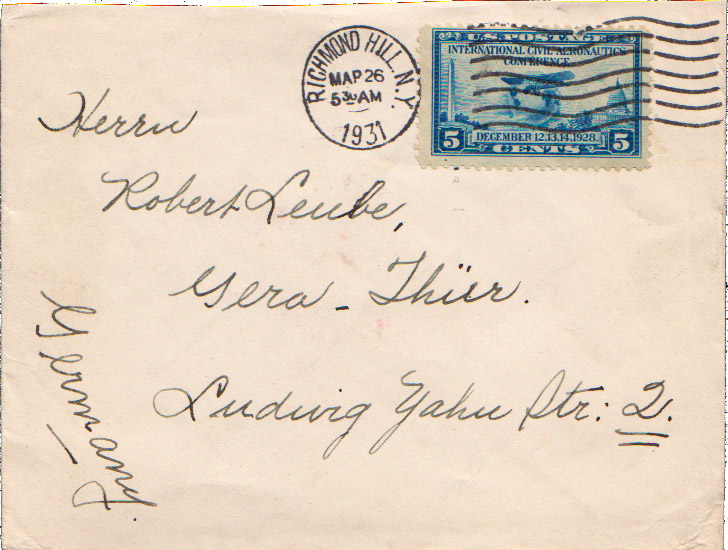 RICHMOND HILL, N.Y.
MAR 26
5 30 AM
1931
U.S. POSTAGE
INTERNATIONAL CIVIL AERONAUTICS
CONFERENCE
DECEMBER 12,13,14,1928
5 CENTS 5
Herrn
Robert Leube,
Gera - Thür.
Ludwig Jahn Str: 2.
Germany